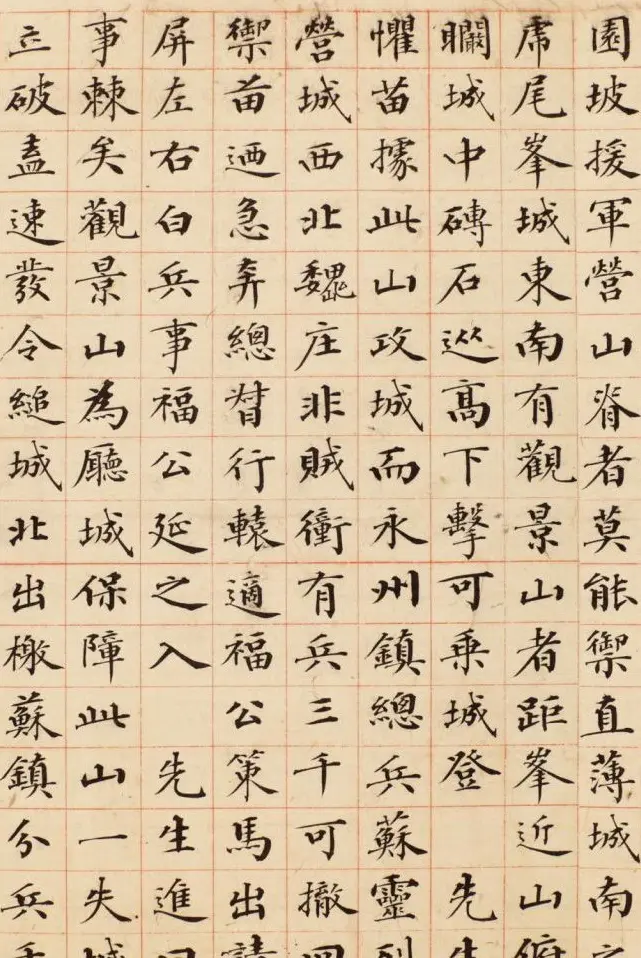 園坡援軍營山脊者莫能禦直薄城南之
虎尾峯城東南有觀景山者距峯近山俯
矙城中磚石從高下擊可乗城登 先生
懼苗據此山攻城而永州鎮總兵蘇靈列
營城西北魏庄非賊衝有兵三千可撤回
禦苗迺急奔總督行轅適福公策馬出請
屏左右白兵事福公延之入 先生進曰
事棘矣觀景山為廳城保障此山一失城
立破盍速發令縋城北出檄蘇鎮分兵千